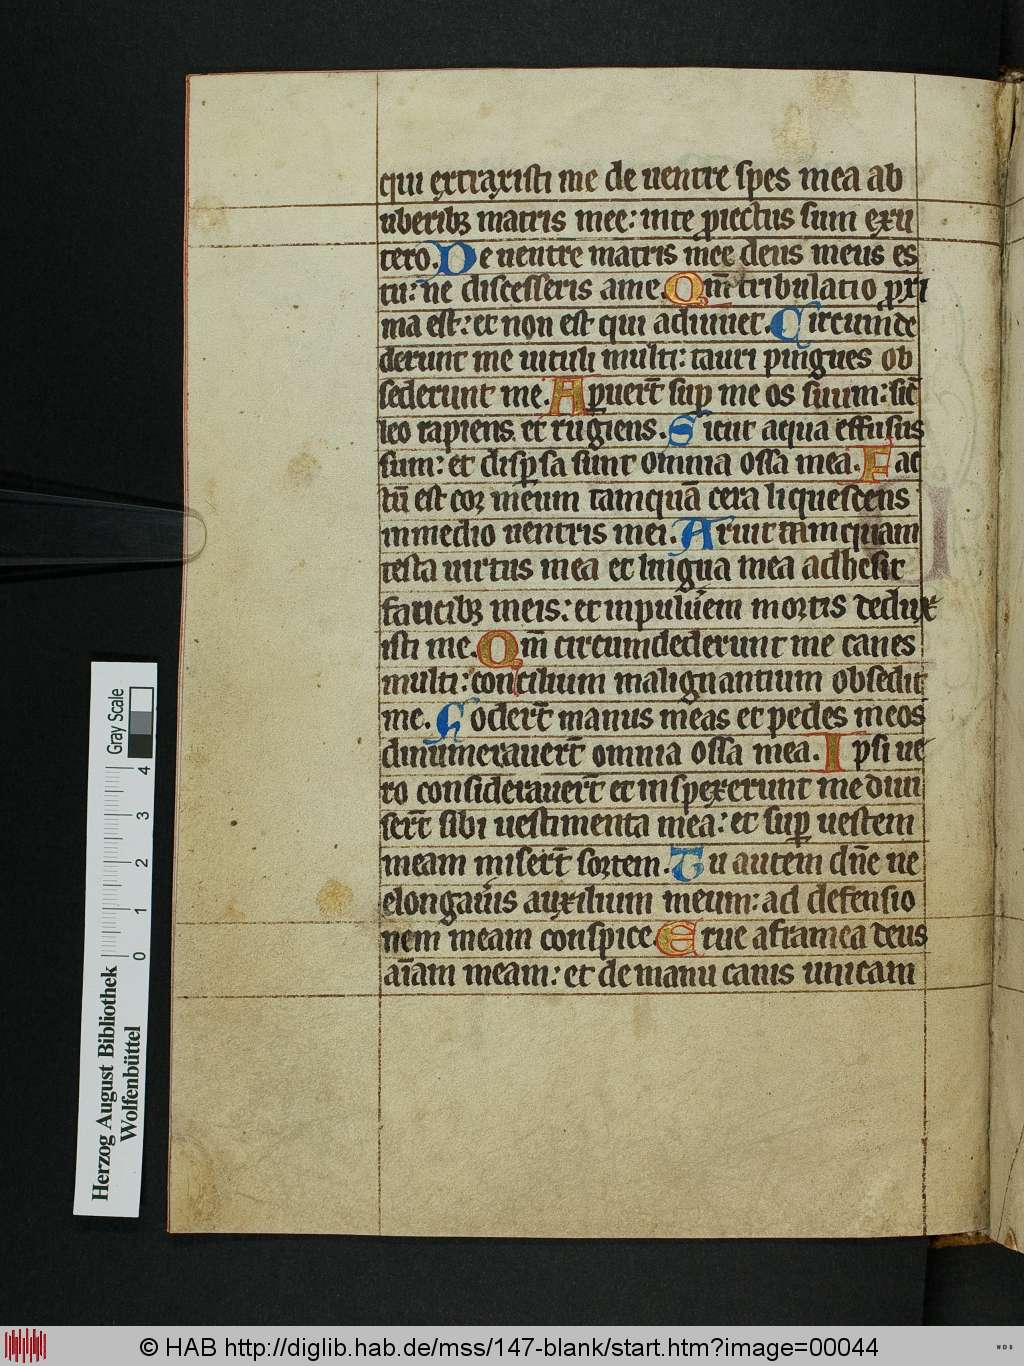 qui extraxisti me de uentre spes mea ab
uberibꝫ matris mee: inte ꝓiectus sum exu
tero. De uentre matris mee deus meus es
tu: ne discesseris ame. Qm̄ tribulatio ꝓxi
ma est: et non est qui adiuuet. Circumde
derunt me uituli multi: tauri pingues ob
sederunt me. Apuert̄ suꝑ me os suum: sic̄
leo rapiens et rugiens. Sicut aqua effusus
sum: et disꝑsa sunt omnia ossa mea. Fac
tū est coꝛ meum tamquā cera liquescens
inmedio uentris mei. Aruit tamquam
testa uirtus mea et lingua mea adhesit
faucibꝫ meis: et inpuluerem moꝛtis dedux
isti me. Qm̄ circumdederunt me canes
multi: concilium malignantium obsedit
me. Foderт̄ manus meas et pedes meos
dinumerauert̄ omnia ossa mea. Ipsi ue
ro considerauert̄ et inspexerunt me diui
sert̄ sibi uestimenta mea: et suꝑ uestem
meam misert̄ soꝛtem. Tu autem dn̄e ne
elongaueris auxilium meum: ad defensio
nem meam conspice. Erue aframea deus
aīam meam: et de manu canis unicam
Herzog August Bibliothek
Wolfenbüttel
Gray Scale
0 1 2 3 4
© HAB http://diglib.hab.de/mss/147-blank/start.htm?image=00044